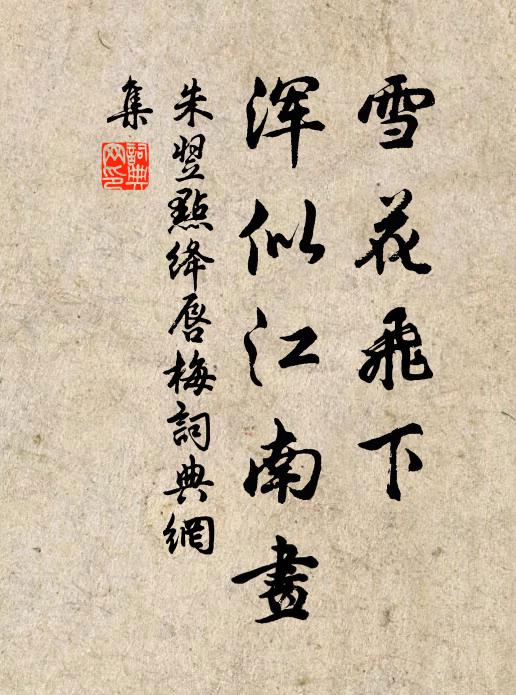 雪花飛下
渾似江南畫
朱翌點絳唇梅詞典網
集
詞典
網印